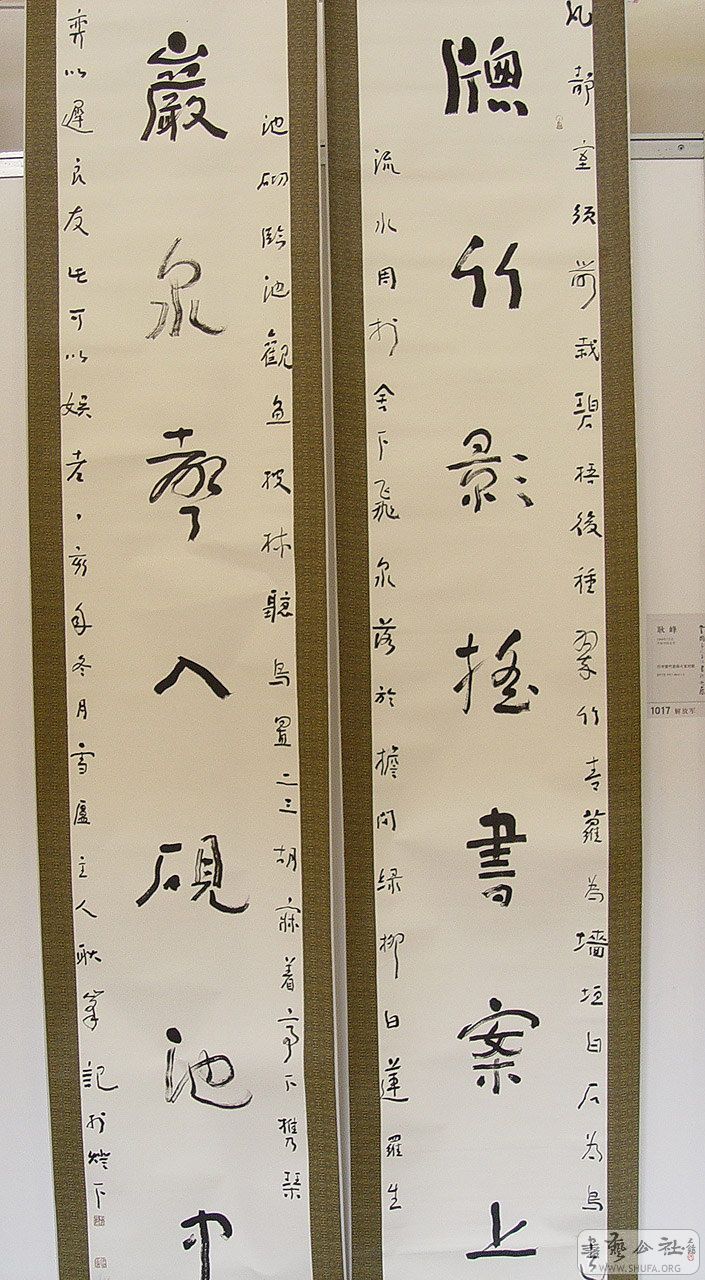 凡静室須前栽碧梧後種翠竹青蘿為墻垣白石為鳥
牕竹影摇書案上
流水周於舍下飛泉落於檐間绿柳白蓮羅生
池砌臨池觀魚披林聽鳥置二三胡床着亭下携琴
巖泉聲入硯池中
弈以遲良友此可以娱老丁亥年冬月雪廬主人耿峯記於燈下
耿 峰
1017 解放军
書藝公社
WWW.SHUFA.ORG